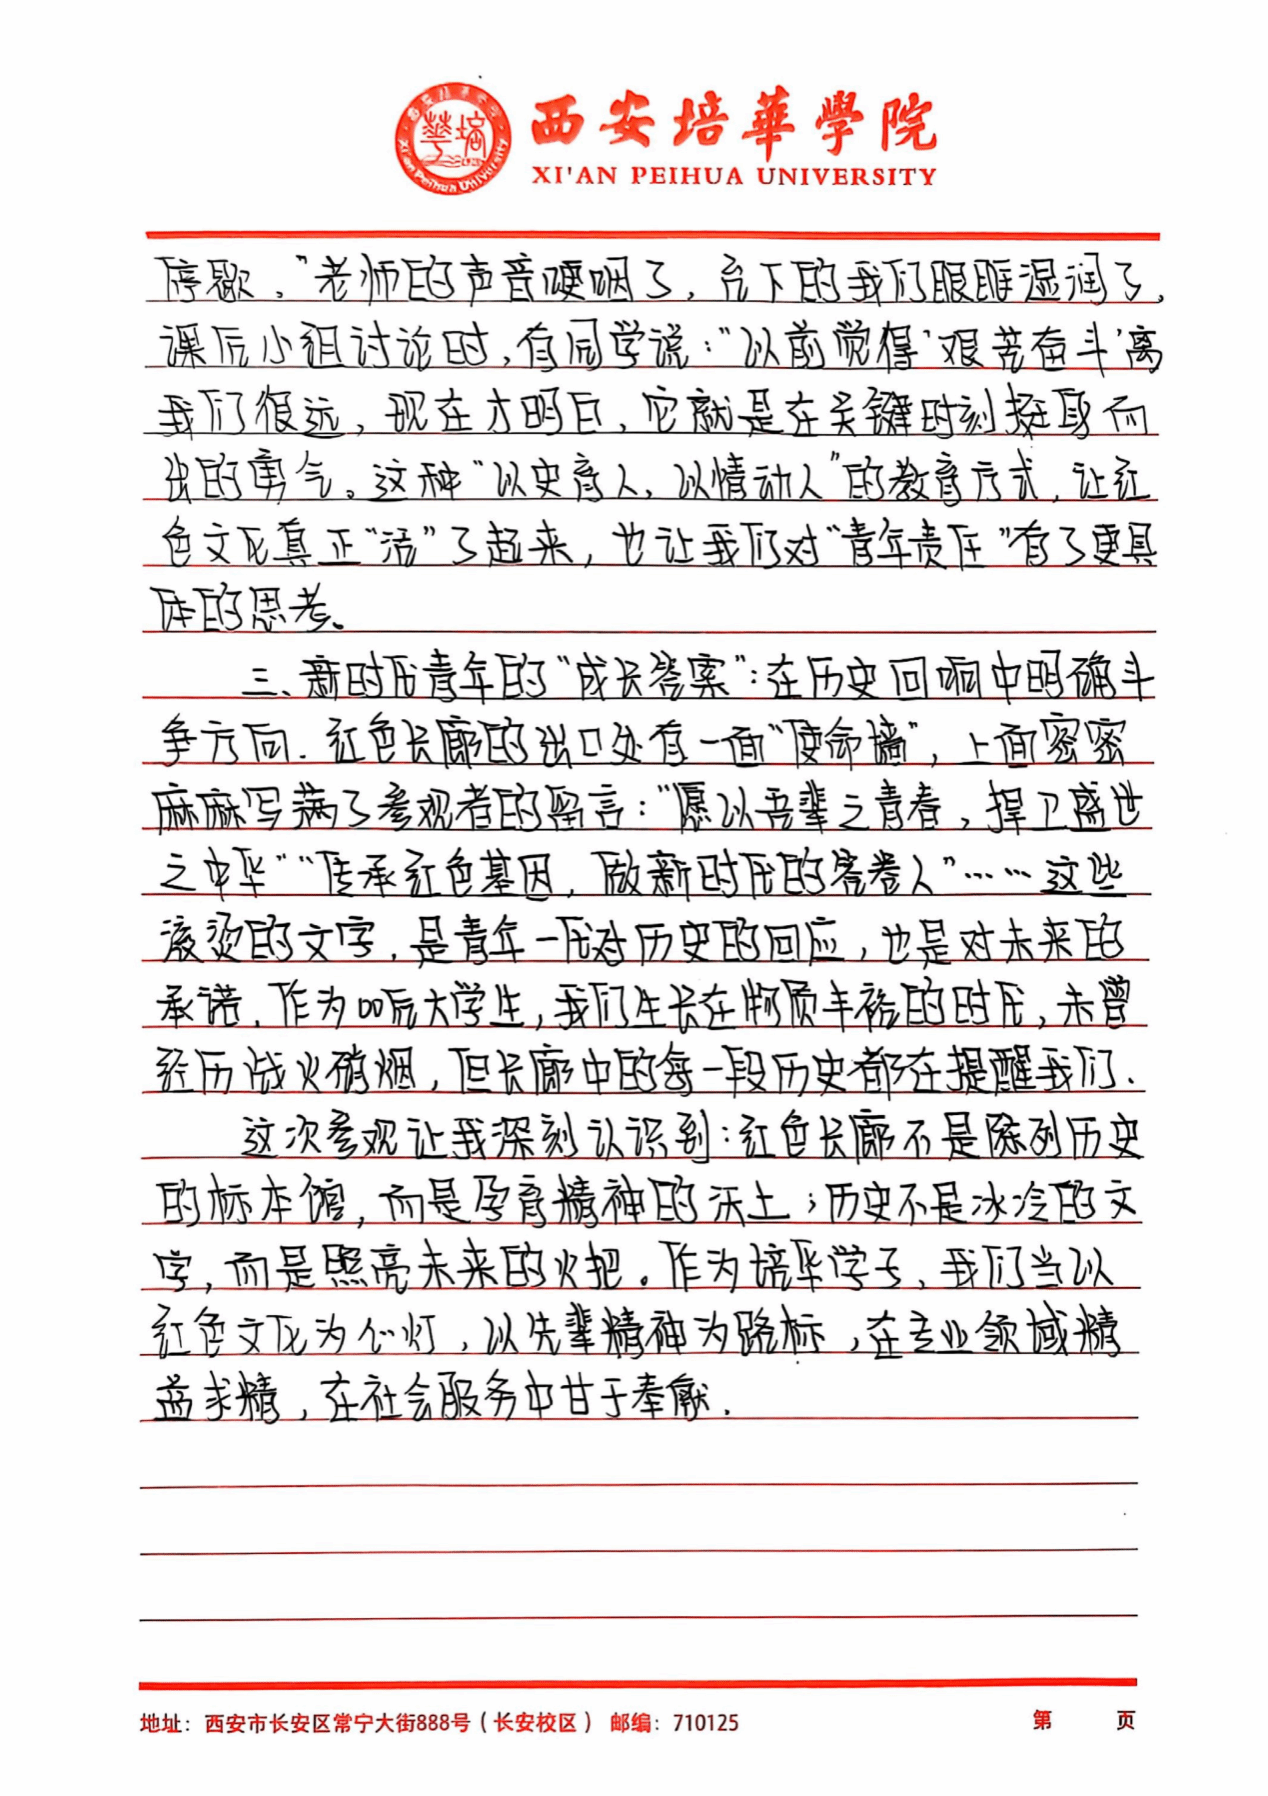 西安培華學院
XI'AN PEIHUA UNIVERSITY
停歇。”老师的声音哽咽了，台下的我们眼眶湿润了。
课后小组讨论时，有同学说：“以前觉得‘艰苦奋斗’离
我们很远，现在才明白，它就是在关键时刻挺身而
出的勇气。这种“以史育人，以情动人”的教育方式，让红
色文化真正“活”了起来，也让我们对“青年责任”有了更具
体的思考。
三、新时代青年的“成长答案”：在历史回响中明确斗
争方向．红色长廊的出口处有一面“使命墙”，上面密密
麻麻写满了参观者的留言：“愿以吾辈之青春，捍卫盛世
之中华”“传承红色基因，做新时代的答卷人”……这些
滚烫的文字，是青年一代对历史的回应，也是对未来的
承诺．作为00后大学生，我们生长在物质丰裕的时代，未曾
经历战火硝烟，但长廊中的每一段历史都在提醒我们．
这次参观让我深刻认识到：红色长廊不是陈列历史
的标本馆，而是孕育精神的沃土；历史不是冰冷的文
字，而是照亮未来的火把。作为培华学子，我们当以
红色文化为心灯，以先辈精神为路标，在专业领域精
益求精，在社会服务中甘于奉献．
地址：西安市长安区常宁大街888号（长安校区） 邮编：710125
第 页